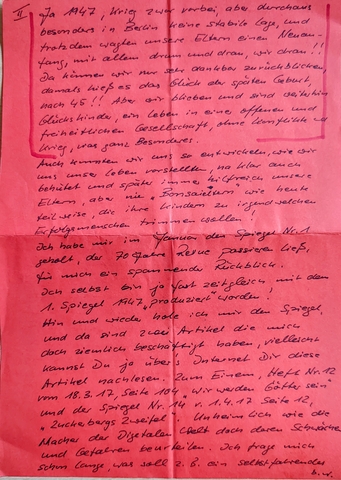 II
Ja 1947, Krieg zwar vorbei, aber durchaus
besonders in Berlin keine stabile Lage, und
trotzdem wagten unsere Eltern einen Neuan-
fang, mit allem drum und dran, wir dran!!
Da können wir nur sehr dankbar zurückblicken,
damals hieß es das Glück der späten Geburt,
nach 45!! Aber wir blieben und sind weiterhin
Glückskinder, ein Leben in einer offenen und
freiheitlichen Gesellschaft, ohne Konflikte und
Krieg, was ganz Besonderes.
Auch konnten wir uns so entwickeln, wie wir
uns unser Leben vorstellten, na klar auch
behütet und später immer hilfreich unsere
Eltern, aber nie "Bonsaieltern" wie heute
teilweise, die ihre Kindern zu irgendwelchen
Erfolgsmenschen trimmen wollen!!
Ich habe mir im Januar den Spiegel Nr. 1
geholt, der 70 Jahre Revue passieren ließ,
für mich ein spannender Rückblick.
Ich selbst bin ja fast zeitgleich, mit dem
1. Spiegel 1947 "produziert" worden!
Hin und wieder hole ich mir den Spiegel,
und da sind zwei Artikel die mich
doch ziemlich beschäftigt haben, vielleicht
kannst Du ja über's Internet Dir diese
Artikel nachlesen. Zum Einem, Heft Nr. 12
vom 18.3.17, Seite 104 "wir werden Götter sein"
und der Spiegel Nr. 14 v. 1.4.17 Seite 12,
"Zuckerbergs Zweifel". Unheimlich wie die
Macher der Digitalen Welt doch daren Schwächen
und Gefahren beurteilen. Ich frage mich
schon lange, was soll z.B. ein selbstfahrendes
b.w.